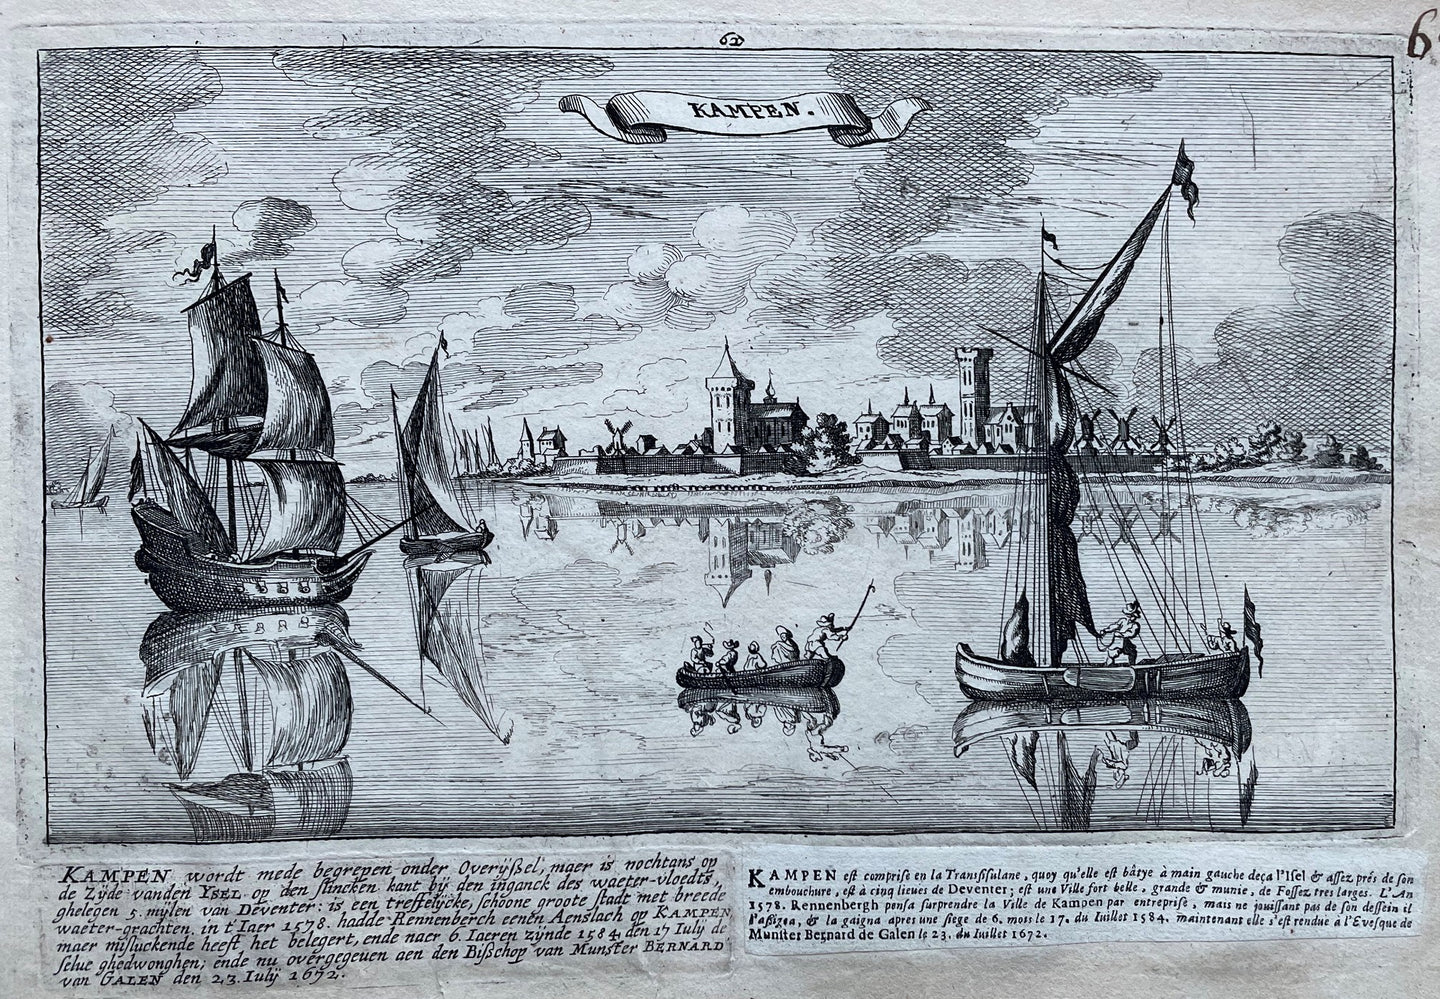 62
6
KAMPEN.
KAMPEN wordt mede begrepen onder Overÿßel, maer is nochtans op
de Zÿde vanden YSEL op den slincken kant bÿ den inganck des waeter-vloedts,
ghelegen 5. mÿlen van Deventer: is een treffelÿcke, schoone groote stadt met breede
waeter-grachten, in t Iaer 1578. hadde Rennenberch eenen Aenslach op KAMPEN
maer misluckende heeft het belegert, ende naer 6. Iaeren zÿnde 1584. den 17 Iulÿ de
selve ghedwonghen; ende nu overgegeuen aen den Bißchop van Munster BERNARD
van GALEN den 23. Iulÿ 1672.
KAMPEN est comprise en la Transsisulane, quoy qu'elle est bâtye à main gauche deça l'Isel & assez prés de son
embouchure, est à cinq lieues de Deventer; est une Ville fort belle, grande & munie, de Fossez tres larges. L'An
1578. Rennenbergh pensa surprendre la Ville de Kampen par entreprise, mais ne jouissant pas de son dessein il
l'assigea, & la gaigna apres une siege de 6. mois le 17. du Iuillet 1584. maintenant elle s'est rendue à l'Evesque de
Munster Bernard de Galen le 23. du Iuillet 1672.